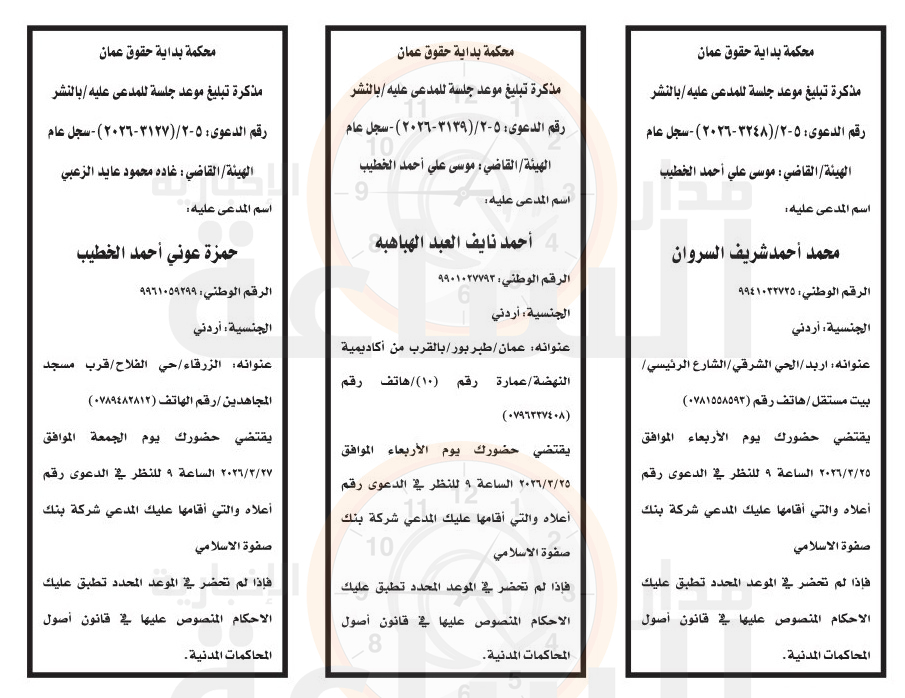 محكمة بداية حقوق عمان
مذكرة تبليغ موعد جلسة للمدعى عليه/بالنشر
رقم الدعوى: ٥-٢/(٣٢٤٨-٢٠٢٦)-سجل عام
الهيئة/القاضي: موسى علي أحمد الخطيب
اسم المدعى عليه:
محمد أحمدشريف السروان
الرقم الوطني: ٩٩٤١٠٣٢٧٢٥
الجنسية: أردني
عنوانه: اربد/الحي الشرقي/الشارع الرئيسي/
بيت مستقل/هاتف رقم (٠٧٨١٥٥٨٥٩٢)
يقتضي حضورك يوم الأربعاء الموافق
٢٠٢٦/٣/٢٥ الساعة ٩ للنظر في الدعوى رقم
أعلاه والتي أقامها عليك المدعي شركة بنك
صفوة الاسلامي
فإذا لم تحضر في الموعد المحدد تطبق عليك
الاحكام المنصوص عليها في قانون أصول
المحاكمات المدنية.
محكمة بداية حقوق عمان
مذكرة تبليغ موعد جلسة للمدعى عليه/بالنشر
رقم الدعوى: ٥-٢/(٣١٣٩-٢٠٢٦)-سجل عام
الهيئة/القاضي: موسى علي أحمد الخطيب
اسم المدعى عليه:
أحمد نايف العبد الهباهبه
الرقم الوطني: ٩٩٠١٠٢٧٧٩٣
الجنسية: أردني
عنوانه: عمان/طبربور/بالقرب من أكاديمية
النهضة/عمارة رقم (١٠)/هاتف رقم
(٠٧٩٦٣٣٧٤٠٨)
يقتضي حضورك يوم الأربعاء الموافق
٢٠٢٦/٣/٢٥ الساعة ٩ للنظر في الدعوى رقم
أعلاه والتي أقامها عليك المدعي شركة بنك
صفوة الاسلامي
فإذا لم تحضر في الموعد المحدد تطبق عليك
الاحكام المنصوص عليها في قانون أصول
المحاكمات المدنية.
محكمة بداية حقوق عمان
مذكرة تبليغ موعد جلسة للمدعى عليه/بالنشر
رقم الدعوى: ٥-٢/(٣١٢٧-٢٠٢٦)-سجل عام
الهيئة/القاضي: غاده محمود عايد الزعبي
اسم المدعى عليه:
حمزة عوني أحمد الخطيب
الرقم الوطني: ٩٩٦١٠٥٩٢٩٩
الجنسية: أردني
عنوانه: الزرقاء/حي الفلاح/قرب مسجد
المجاهدين/رقم الهاتف (٠٧٨٩٤٨٢٨١٢)
يقتضي حضورك يوم الجمعة الموافق
٢٠٢٦/٣/٢٧ الساعة ٩ للنظر في الدعوى رقم
أعلاه والتي أقامها عليك المدعي شركة بنك
صفوة الاسلامي
فإذا لم تحضر في الموعد المحدد تطبق عليك
الاحكام المنصوص عليها في قانون أصول
المحاكمات المدنية.
مدار
الساعة
الإخبارية